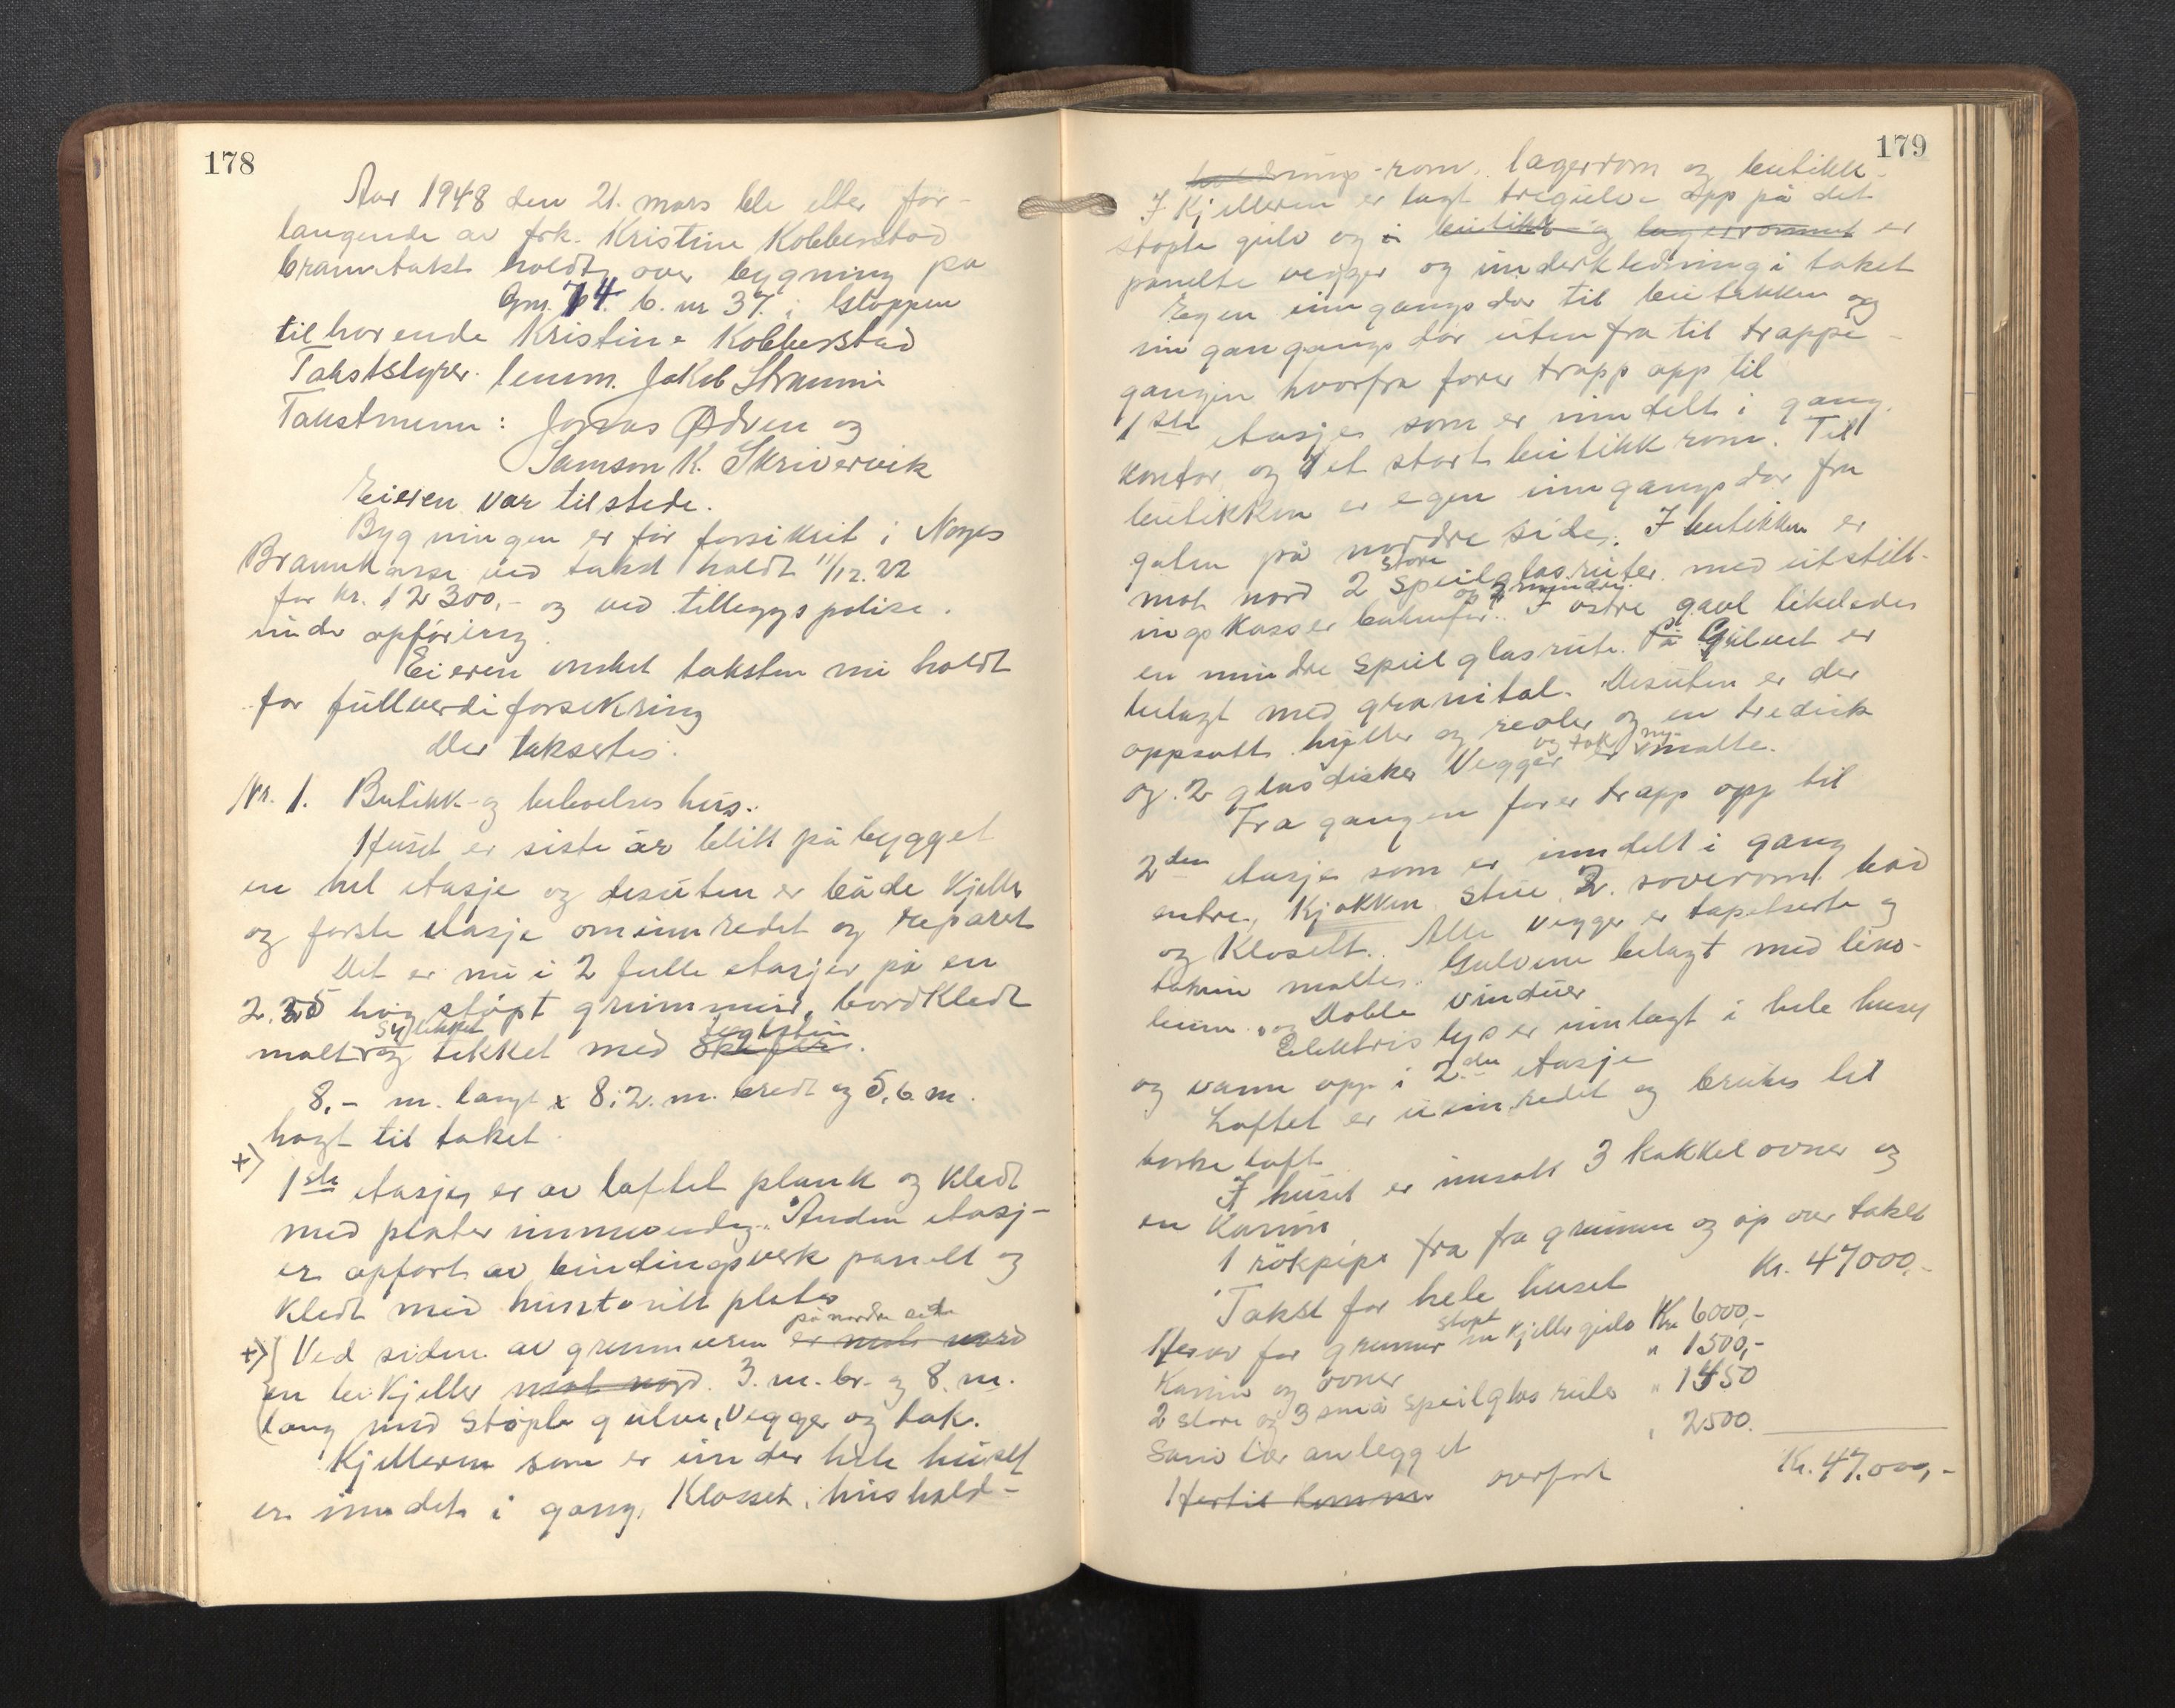 178
Aar 1948 den 21. mars ble etter for-
langende av frk. Kristine Kobberstad
branntakst holdt over bygning på
Gnr. 74. b. nr 37. i Gloppen
tilhørende Kristine Kobberstad
Takststyrer. lensm. Jakob Straume
Takstmenn: Jonas Ødven og
Samson K. Skrivervik
Eieren var tilstede.
Bygningen er før forsikret i Norges
Brannkasse ved takst holdt 11/12.22
for kr. 12300,- og ved tilleggspolise.
under opføring.
Eieren ønsket taksten nu holdt
for fullverdiforsikring
Der taksertes:
Nr. 1. Butikk- og beboelseshus.
Huset er siste år blitt på bygget
en hel etasje og desuten er både kjeller
og første etasje ominnredet og reparert
Det er nu i 2 fulle etasjer på en
2.25 høy støpt grunnmur, bordkledt
malt og tekket med skifer teglstein.
8,- m. langt x 8.2. m. bredt og 5,6 m.
høgt til taket.
+) 1ste etasje er av laftet plank og kledt
med plater innvendig. Anden etasj-
er opført av bindingsverk panelt og
kledt med huntonitt plater
på nordre side
+) Ved siden av grunnmuren er mot nord
en bi kjeller mot nord. 3. m. br. og 8. m.
lang med støpte gulve, vegger og tak.
Kjelleren som er under hele huset
er inndelt i gang, Klosset, hushold-
179
holdnings-rom, lagerrom og butikk-
I Kjelleren er lagt tregulv opp på det
støpte gulv og i butikk og lagerrommet er
panelte vegger og underkledning i taket
Egen inngangsdør til butikken og
inngangangsdør utenfra til trappe-
gangen hvorfra fører trapp opp til
1ste etasje som er inndelt i gang,
kontor, og et stort butikkrom. Til
butikken er egen inngangsdør fra
gaten på nordre side. I butikken er
store
mot nord 2 speilglasruter med utstill-
og 2 mindre.
ingskasser bakenfor. I østre gavl likeledes
en mindre speilglasrute. På Gulvet er
belagt med granitol. Desuten er der
oppsatt hyller og reoler og en tredisk
og tak ny-
og 2 glasdisker Vegger er malte.
Fra gangen fører trapp opp til
2den etasje som er inndelt i gang
entre, Kjøkken stue, 2. soverom, bad
og Klosett. Alle vegger er tapetserte og
takene malte. Gulvene belagt med lino-
leum. og Doble vinduer
Elektrisk lys er innlagt i hele huset
og vann opp i 2den etasje
Loftet er uinnredet og brukes til
tørke loft
I huset er innsatt 3 kakkelovner og
en Kamin
1 rökpipe fra fra grunnen og op over taket
Takst for hele huset Kr. 47000,-
støpt
Herav for grunnmur m kjellergulv Kr 6000,-
Kamin og ovner " 1500,-
2 store og 3 små speilglas ruter " 1450
Sanitær anlegget " 2500.
Hertil komm. overført Kr. 47.000,-